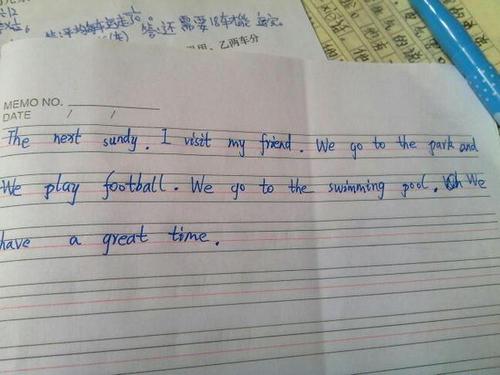 答:平均每车运走1/10。 答:还需要18车才能运完。
甲、乙两车分
MEMO NO.
DATE / /
The next sundy. I visit my friend. We go to the park and
We play football. We go to the swimming pool. We
have a great time.